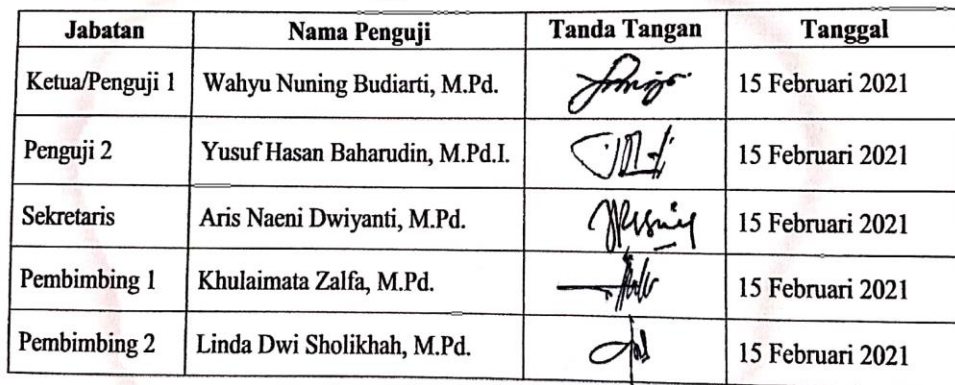 Jabatan Nama Penguji Tanda Tangan Tanggal
Ketua/Penguji 1 Wahyu Nuning Budiarti, M.Pd. 15 Februari 2021
Penguji 2 Yusuf Hasan Baharudin, M.Pd.I. 15 Februari 2021
Sekretaris Aris Naeni Dwiyanti, M.Pd. 15 Februari 2021
Pembimbing 1 Khulaimata Zalfa, M.Pd. 15 Februari 2021
Pembimbing 2 Linda Dwi Sholikhah, M.Pd. 15 Februari 2021